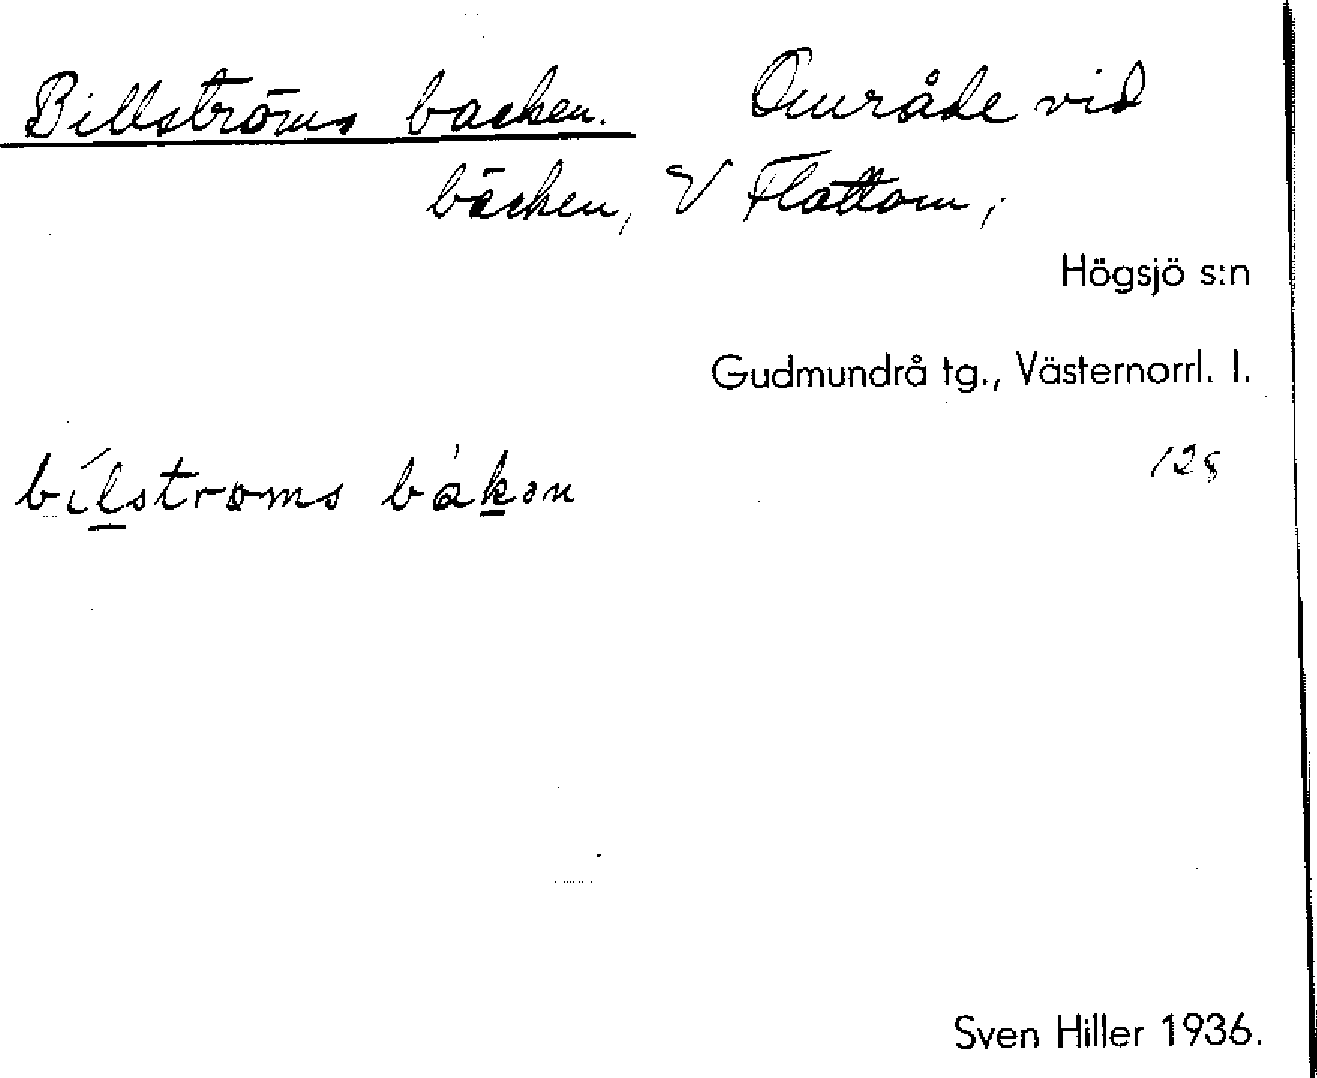 Billströms backen. Område vid
bäcken, V Flattom,
Högsjö s:n
Gudmundrå tg., Västernorrl. l.
128
bílstroms bákən
Sven Hiller 1936.